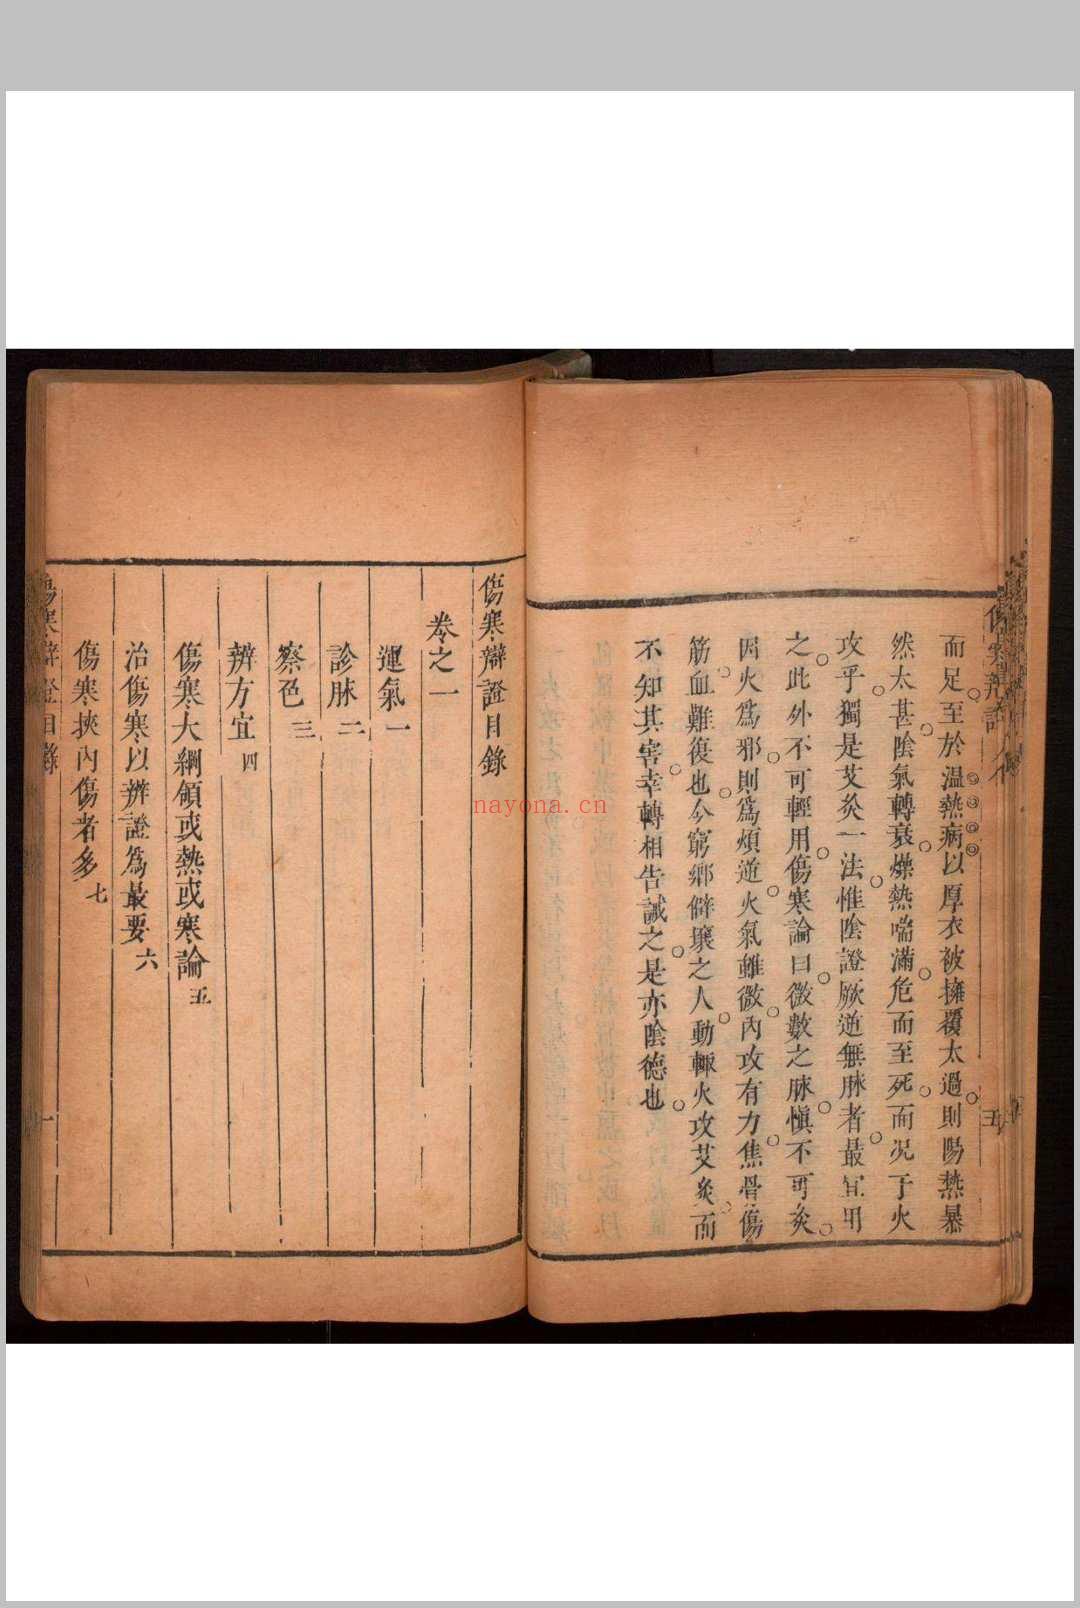 而足至於溫熱病以厚衣被擁覆太過則陽熱暴
然太甚陰氣轉衰燥熱喘滿危而至死而况于火
攻乎獨是艾灸一法惟陰證厥逆無脉者最宜用
之此外不可輕用傷寒論曰微數之脉慎不可灸
因火爲邪則爲煩逆火氣雖微內攻有力焦骨傷
筋血難復也今窮鄉僻壤之人動輙火攻艾灸而
不知其害幸轉相告誡之是亦陰德也
傷寒辯證目錄
卷之一
運氣一
診脉二
察色三
辨方宜四
傷寒大綱領或熱或寒論五
治傷寒以辨證爲最要六
傷寒挾內傷者多七
傷寒辯證目錄
一
五
nayona.cn